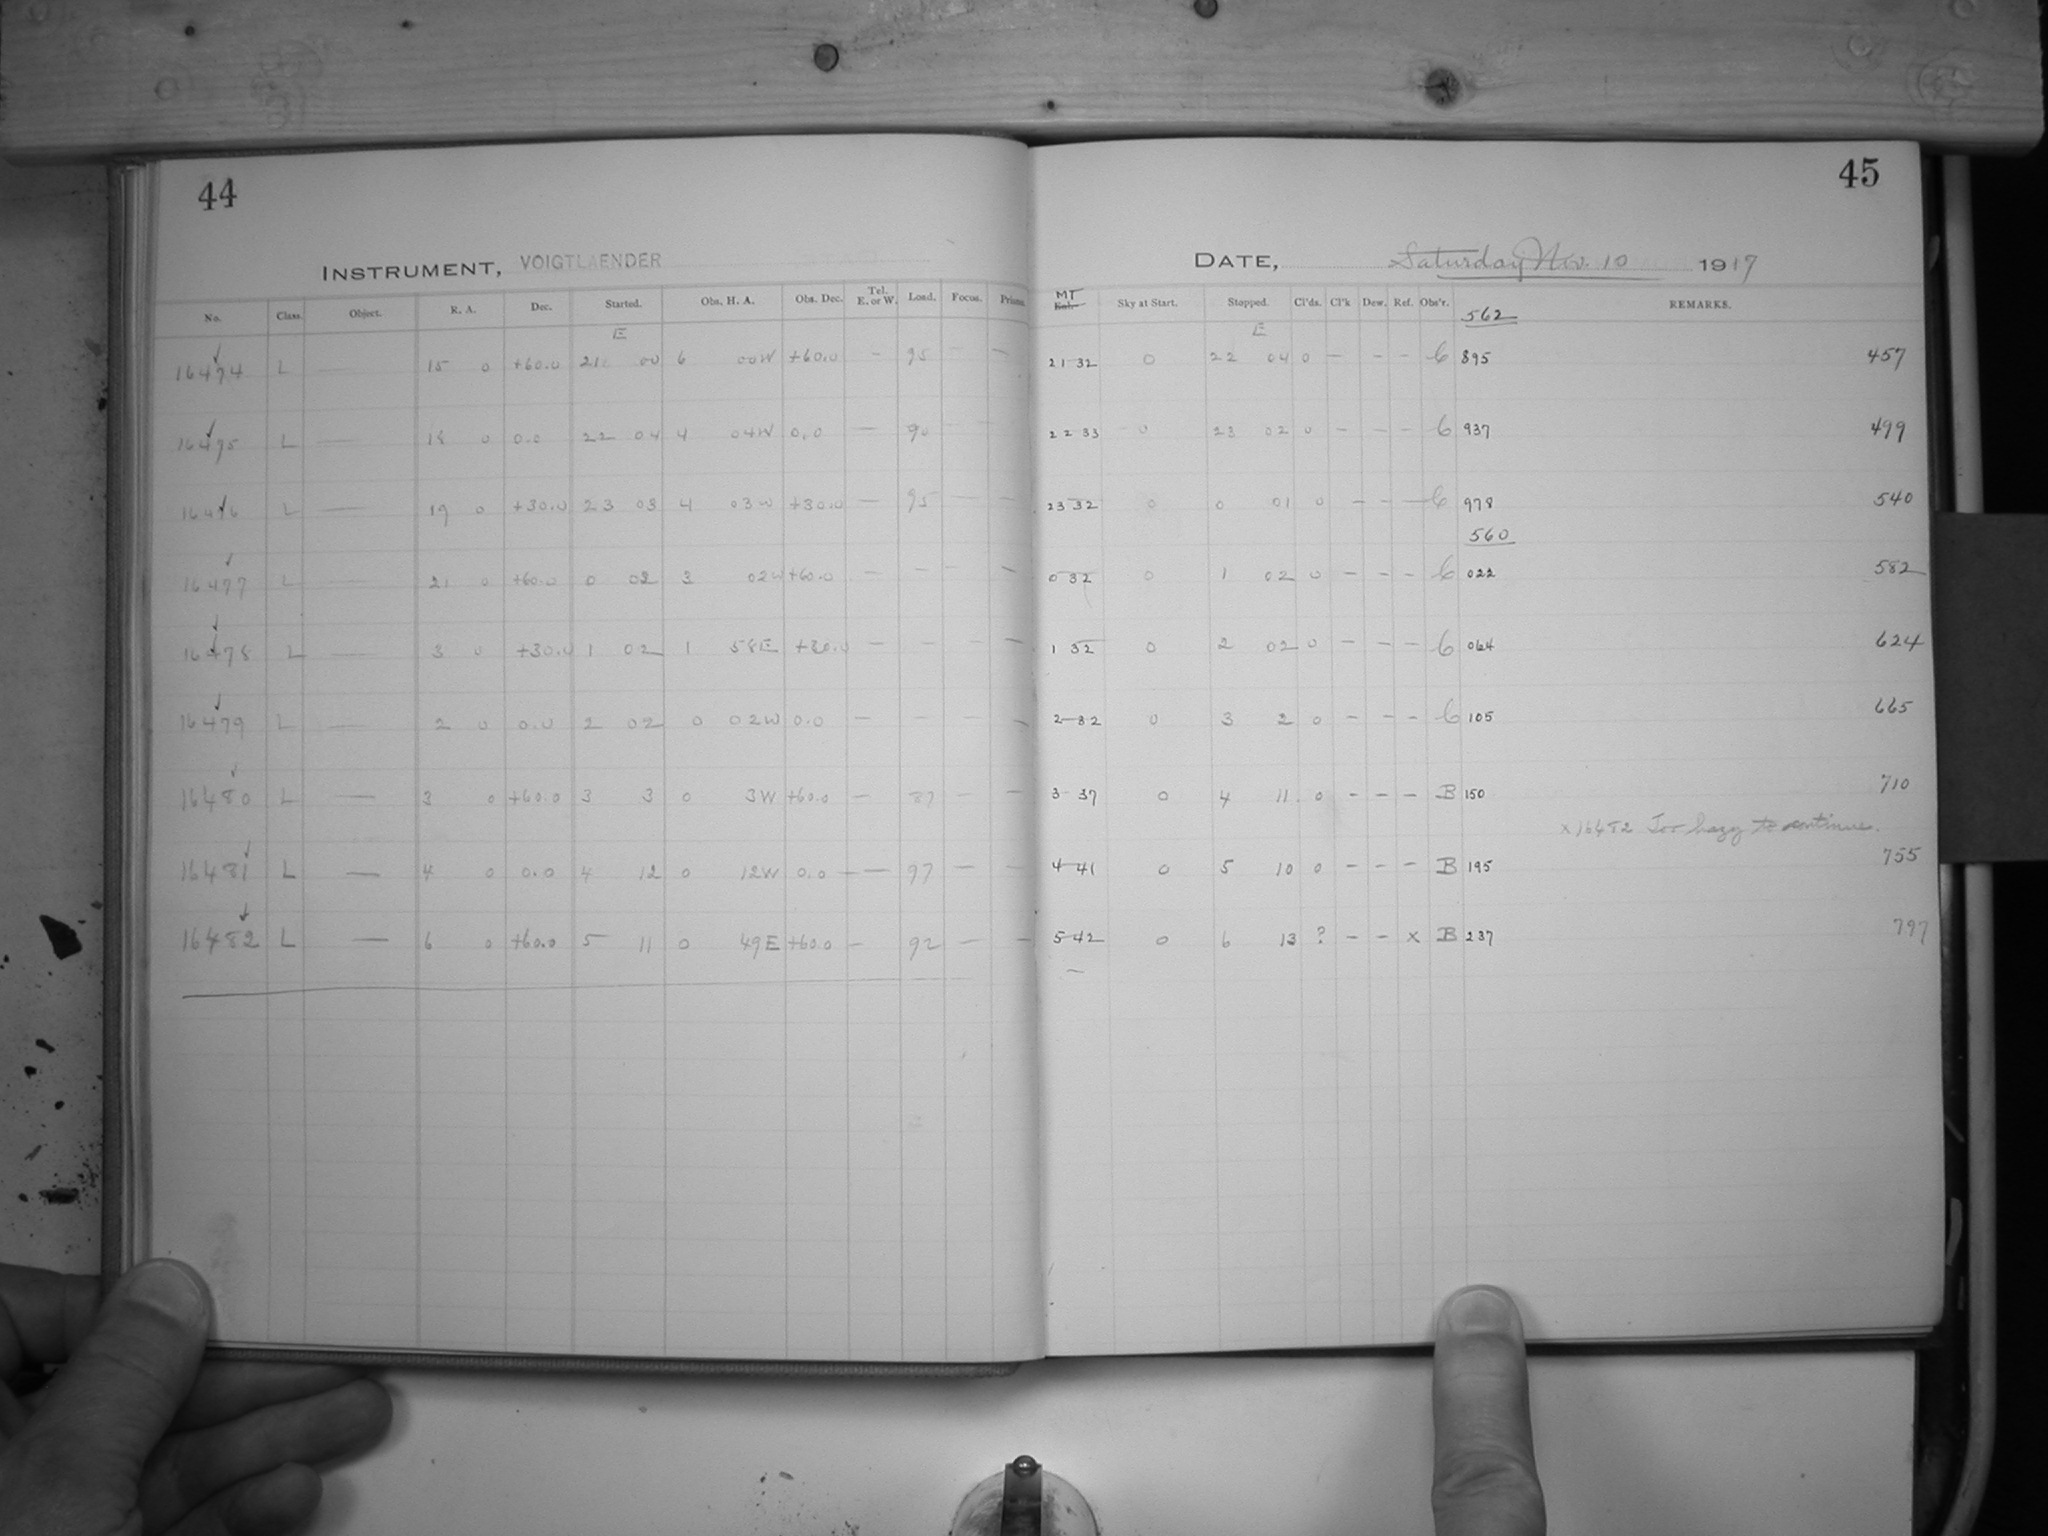 44
45
INSTRUMENT, VOIGTLAENDER
DATE, Saturday Nov. 10 1917
No. Class. Object. R. A. Dec. Started. Obs. H. A. Obs. Dec. Tel. E. or W. Load. Focus. Prisms. MT Sky at Start. Stopped. Cl'ds. Cl'k Dew. Ref. Obs'r. REMARKS.
E E 562
16474 L — 15 0 +60.0 21 00 6 00W +60.0 — 95 — — 21 32 0 22 04 0 — — — C 895 457
16475 L — 18 0 0.0 22 04 4 04W 0.0 — 90 22 33 0 23 02 0 — — — C 937 499
16476 L — 19 0 +30.0 23 03 4 03W +30.0 — 95 — — 23 32 0 0 01 0 — — — C 978 540
560
16477 L — 21 0 +60.0 0 02 3 02W +60.0 — — — — 0 32 0 1 02 0 — — — C 022 582
16478 L — 3 0 +30.0 1 02 1 58E +30.0 — — — — 1 32 0 2 02 0 — — — C 064 624
16479 L — 2 0 0.0 2 02 0 02W 0.0 — — — — 2 32 0 3 2 0 — — — C 105 665
16480 L — 3 0 +60.0 3 3 0 3W +60.0 — 87 — — 3 37 0 4 11 0 — — — B 150 710
x 16482 Too hazy to continue.
16481 L — 4 0 0.0 4 12 0 12W 0.0 — — 97 — — 4 41 0 5 10 0 — — — B 195 755
16482 L — 6 0 +60.0 5 11 0 49E +60.0 — 92 — — 5 42 0 6 13 ? — — x B 237 797